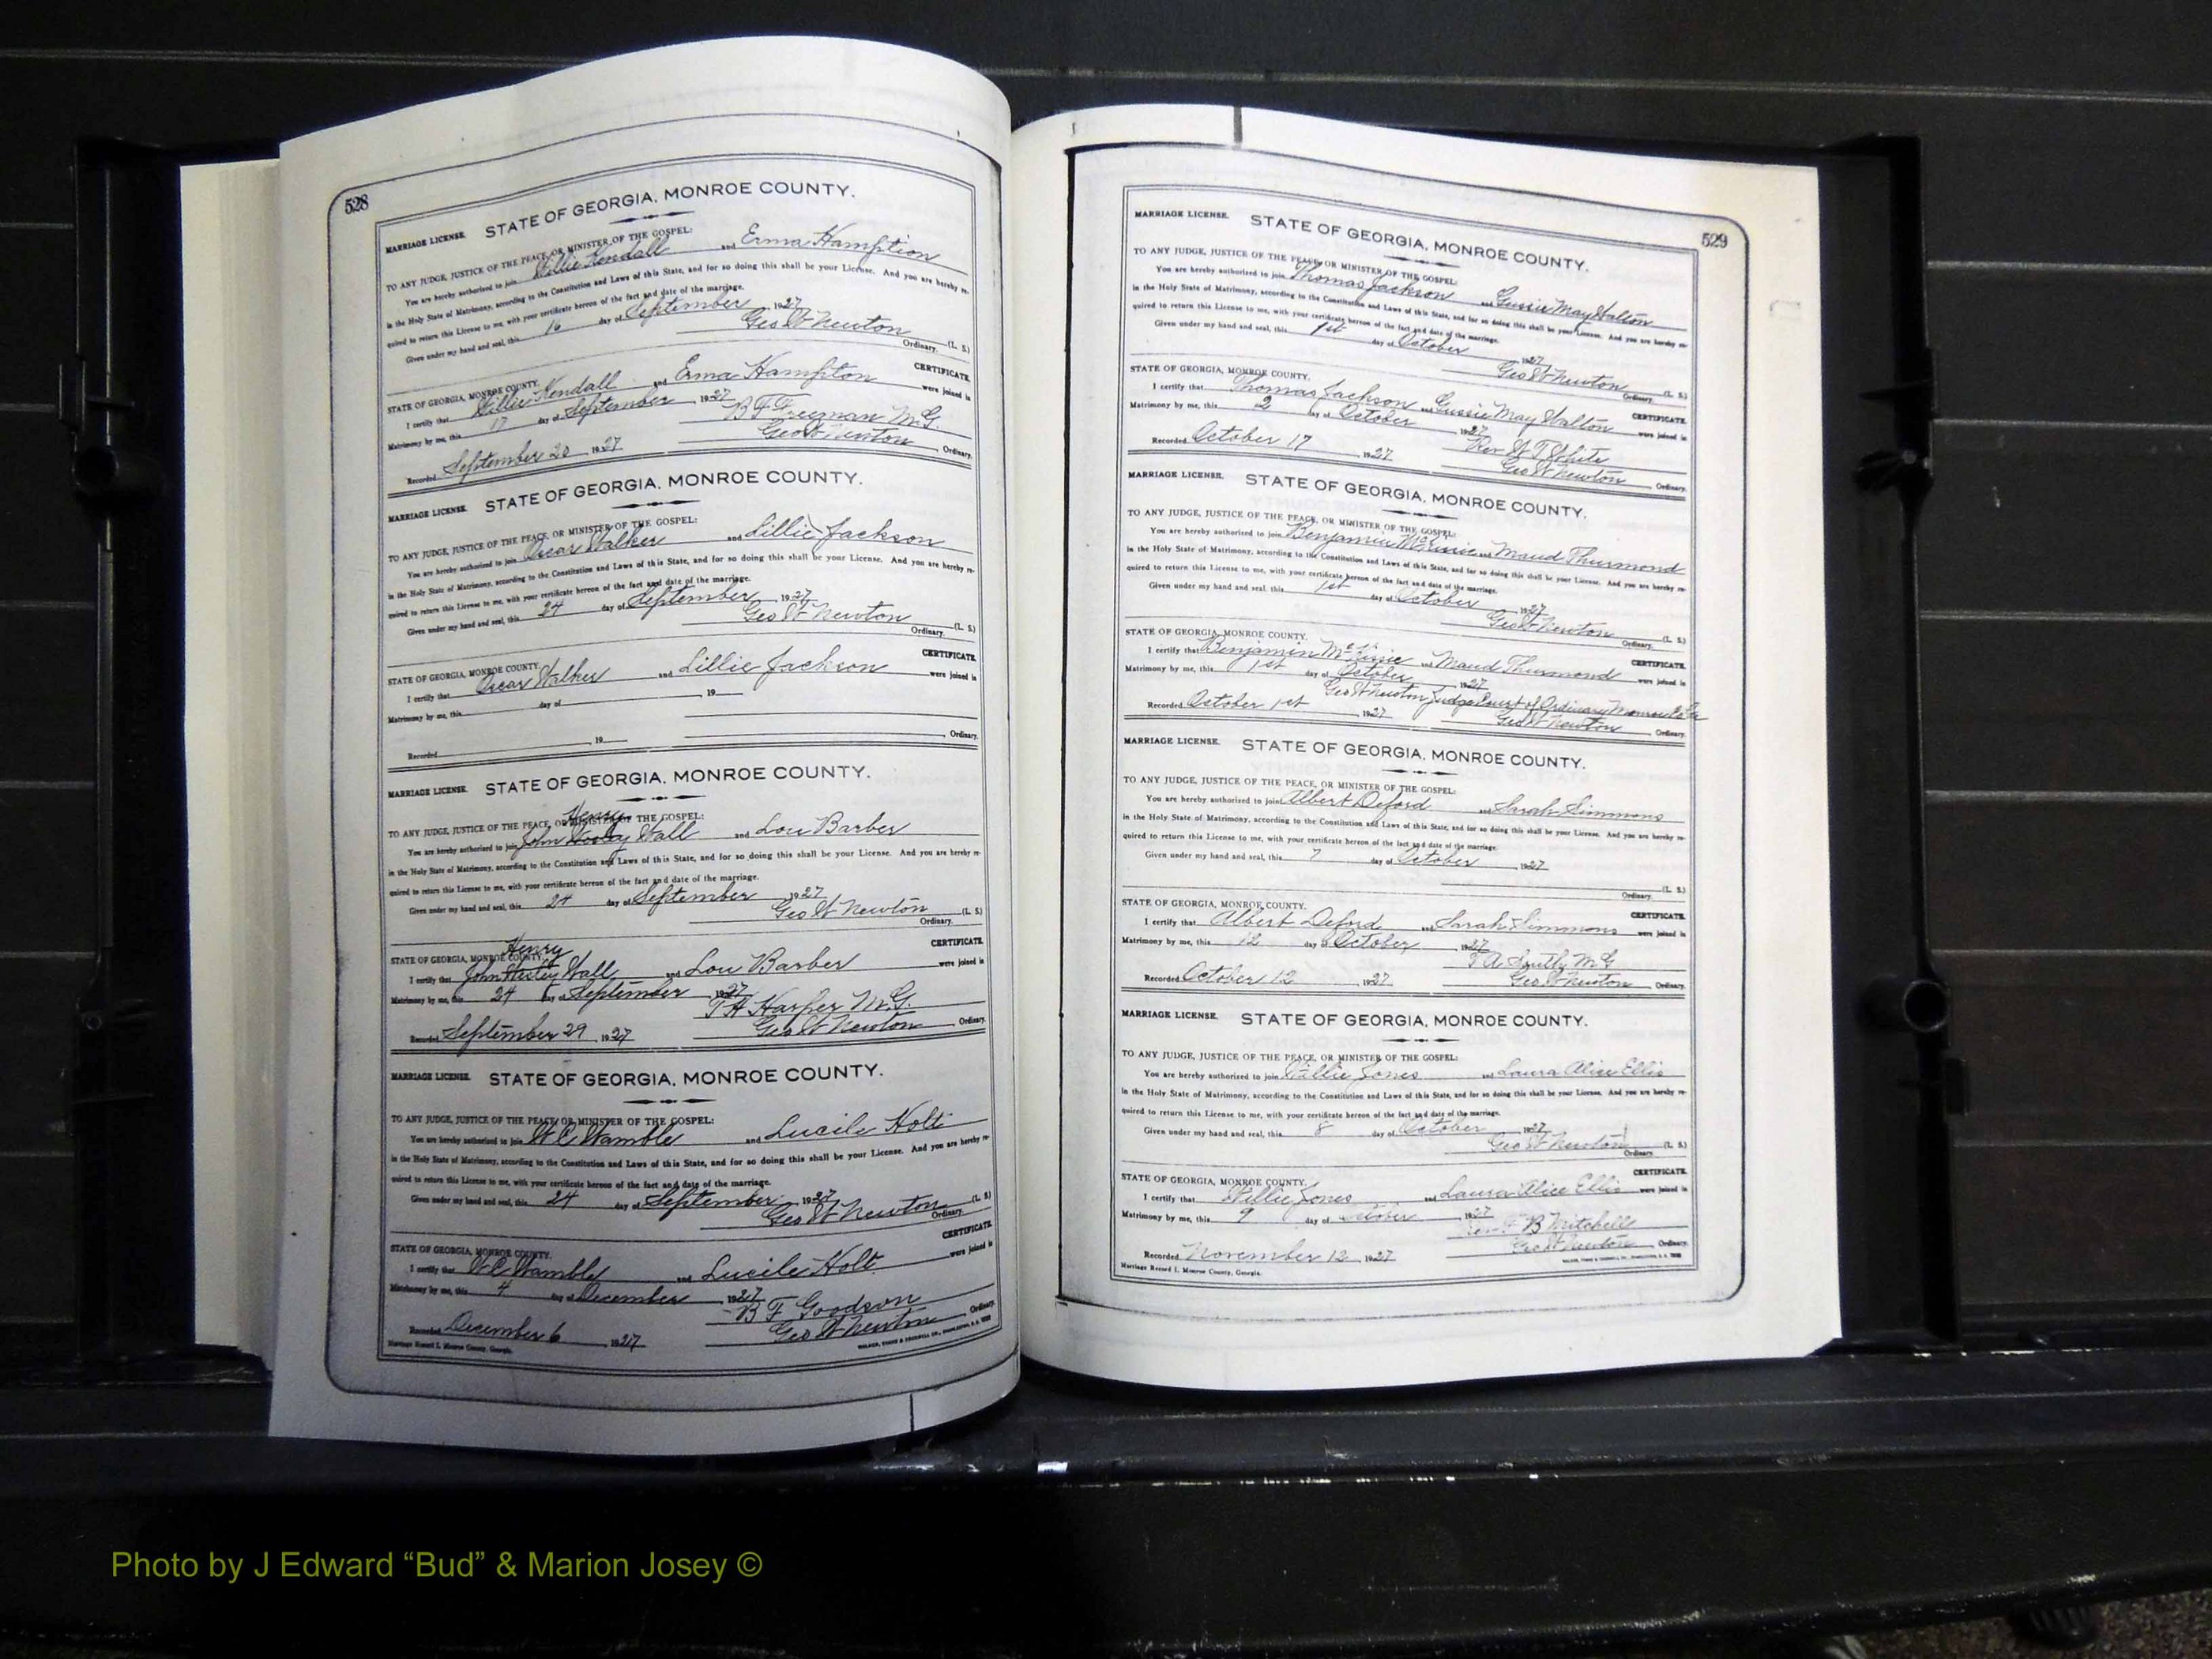 528
STATE OF GEORGIA, MONROE COUNTY.
MARRIAGE LICENSE.
TO ANY JUDGE, JUSTICE OF THE PEACE, OR MINISTER OF THE GOSPEL:
You are hereby authorized to join Willie Kendall and Erma Hamption
in the Holy State of Matrimony, according to the Constitution and Laws of this State, and for so doing this shall be your License. And you are hereby re-
quired to return this License to me, with your certificate hereon of the fact and date of the marriage.
Given under my hand and seal, this 16 day of September 1927
Geo W Newton (L. S.)
Ordinary.
STATE OF GEORGIA, MONROE COUNTY. CERTIFICATE.
I certify that Willie Kendall and Erma Hampton were joined in
Matrimony by me, this 17 day of September 1927
B F Freeman M.G.
Recorded September 20 1927 Geo W Newton Ordinary.
MARRIAGE LICENSE. STATE OF GEORGIA, MONROE COUNTY.
TO ANY JUDGE, JUSTICE OF THE PEACE, OR MINISTER OF THE GOSPEL:
You are hereby authorized to join Oscar Walker and Lillie Jackson
in the Holy State of Matrimony, according to the Constitution and Laws of this State, and for so doing this shall be your License. And you are hereby re-
quired to return this License to me, with your certificate hereon of the fact and date of the marriage.
Given under my hand and seal, this 24 day of September 1927
Geo W Newton (L. S.)
Ordinary.
STATE OF GEORGIA, MONROE COUNTY. CERTIFICATE.
I certify that Oscar Walker and Lillie Jackson were joined in
Matrimony by me, this day of 19
Recorded 19 Ordinary.
MARRIAGE LICENSE. STATE OF GEORGIA, MONROE COUNTY.
TO ANY JUDGE, JUSTICE OF THE PEACE, OR MINISTER OF THE GOSPEL:
Henry
You are hereby authorized to join John Wall and Lou Barber
in the Holy State of Matrimony, according to the Constitution and Laws of this State, and for so doing this shall be your License. And you are hereby re-
quired to return this License to me, with your certificate hereon of the fact and date of the marriage.
Given under my hand and seal, this 24 day of September 1927
Geo W Newton (L. S.)
Ordinary.
STATE OF GEORGIA, MONROE COUNTY. CERTIFICATE.
Henry
I certify that John Wesley Wall and Lou Barber were joined in
Matrimony by me, this 24 day of September 1927
T A Harper M.G.
Recorded September 29 1927 Geo W Newton Ordinary.
MARRIAGE LICENSE. STATE OF GEORGIA, MONROE COUNTY.
TO ANY JUDGE, JUSTICE OF THE PEACE, OR MINISTER OF THE GOSPEL:
You are hereby authorized to join W C Wamble and Lucile Holt
in the Holy State of Matrimony, according to the Constitution and Laws of this State, and for so doing this shall be your License. And you are hereby re-
quired to return this License to me, with your certificate hereon of the fact and date of the marriage.
Given under my hand and seal, this 24 day of September 1927
Geo W Newton (L. S.)
Ordinary.
STATE OF GEORGIA, MONROE COUNTY. CERTIFICATE.
I certify that W C Wamble and Lucile Holt were joined in
Matrimony by me, this 4 day of December 1927
B F Goodson
Recorded December 6 1927 Geo W Newton Ordinary.
Marriage Record I, Monroe County, Georgia.
529
MARRIAGE LICENSE. STATE OF GEORGIA, MONROE COUNTY.
TO ANY JUDGE, JUSTICE OF THE PEACE, OR MINISTER OF THE GOSPEL:
You are hereby authorized to join Thomas Jackson and Gussie May Walton
in the Holy State of Matrimony, according to the Constitution and Laws of this State, and for so doing this shall be your License. And you are hereby re-
quired to return this License to me, with your certificate hereon of the fact and date of the marriage.
Given under my hand and seal, this 1st day of October 1927
Geo W Newton (L. S.)
Ordinary.
STATE OF GEORGIA, MONROE COUNTY. CERTIFICATE.
I certify that Thomas Jackson and Gussie May Walton were joined in
Matrimony by me, this 2 day of October 1927
Rev W T White
Recorded October 17 1927 Geo W Newton Ordinary.
MARRIAGE LICENSE. STATE OF GEORGIA, MONROE COUNTY.
TO ANY JUDGE, JUSTICE OF THE PEACE, OR MINISTER OF THE GOSPEL:
You are hereby authorized to join Benjamin and Maud Thurmond
in the Holy State of Matrimony, according to the Constitution and Laws of this State, and for so doing this shall be your License. And you are hereby re-
quired to return this License to me, with your certificate hereon of the fact and date of the marriage.
Given under my hand and seal, this 1st day of October 1927
Geo W Newton (L. S.)
Ordinary.
STATE OF GEORGIA, MONROE COUNTY. CERTIFICATE.
I certify that Benjamin and Maud Thurmond were joined in
Matrimony by me, this 1st day of October 1927
Geo W Newton Judge Court of Ordinary Monroe Co Ga
Recorded October 1st 1927 Geo W Newton Ordinary.
MARRIAGE LICENSE. STATE OF GEORGIA, MONROE COUNTY.
TO ANY JUDGE, JUSTICE OF THE PEACE, OR MINISTER OF THE GOSPEL:
You are hereby authorized to join Albert Deford and Sarah Simmons
in the Holy State of Matrimony, according to the Constitution and Laws of this State, and for so doing this shall be your License. And you are hereby re-
quired to return this License to me, with your certificate hereon of the fact and date of the marriage.
Given under my hand and seal, this 7 day of October 1927
(L. S.)
Ordinary.
STATE OF GEORGIA, MONROE COUNTY. CERTIFICATE.
I certify that Albert Deford and Sarah Simmons were joined in
Matrimony by me, this 12 day of October, 1927
M G
Recorded October 12 1927 Geo W Newton Ordinary.
MARRIAGE LICENSE. STATE OF GEORGIA, MONROE COUNTY.
TO ANY JUDGE, JUSTICE OF THE PEACE, OR MINISTER OF THE GOSPEL:
You are hereby authorized to join Willie Jones and Laura Alice Ellis
in the Holy State of Matrimony, according to the Constitution and Laws of this State, and for so doing this shall be your License. And you are hereby re-
quired to return this License to me, with your certificate hereon of the fact and date of the marriage.
Given under my hand and seal, this 8 day of October 1927
Geo W Newton (L. S.)
Ordinary.
STATE OF GEORGIA, MONROE COUNTY. CERTIFICATE.
I certify that Willie Jones and Laura Alice Ellis were joined in
Matrimony by me, this 9 day of October 1927
B Mitchell
Recorded November 12 1927 Geo W Newton Ordinary.
Marriage Record I, Monroe County, Georgia.
Photo by J Edward “Bud” & Marion Josey ©